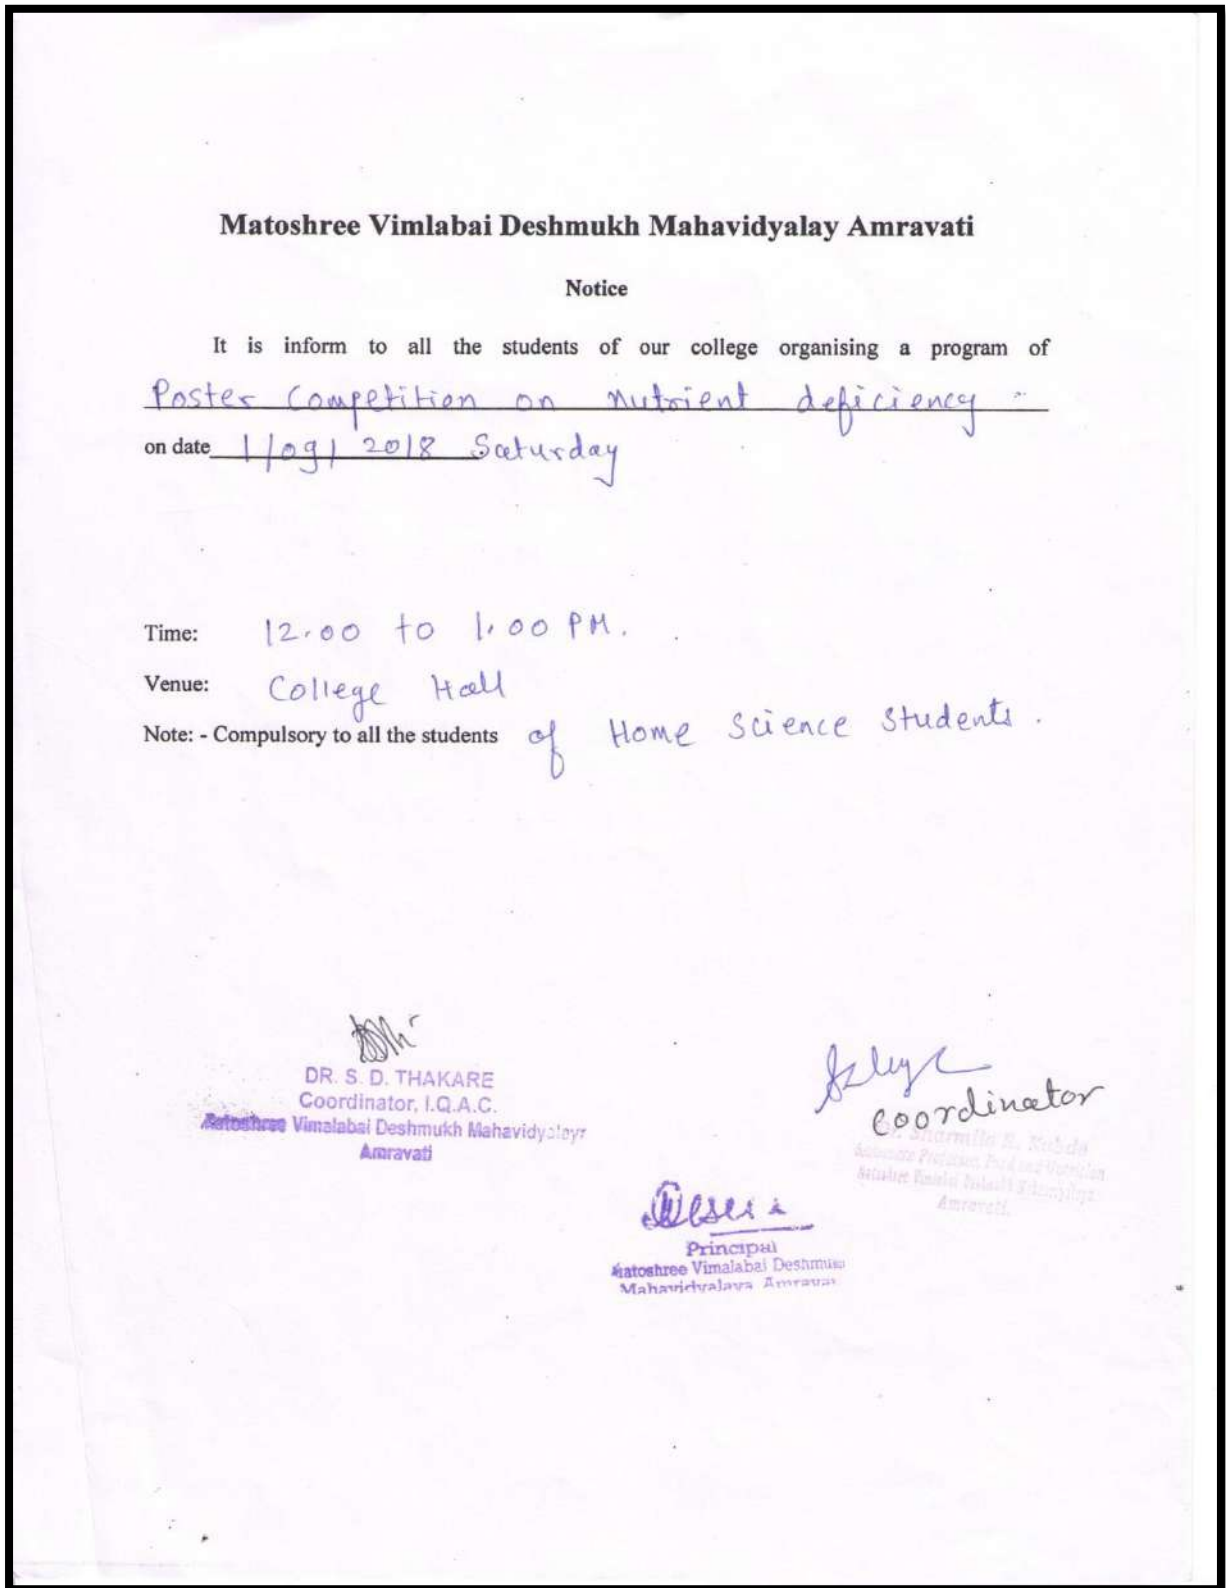 Matoshree Vimlabai Deshmukh Mahavidyalay Amravati
Notice
It is inform to all the students of our college organising a program of
Poster Competition on nutrient deficiency
on date 1/09/2018 Saturday
Time: 12.00 to 1.00 PM.
Venue: College Hall
Note: - Compulsory to all the students of Home Science Students.
DR. S. D. THAKARE
Coordinator, I.Q.A.C.
Matoshree Vimalabai Deshmukh Mahavidyalaya
Amravati
Coordinator
Dr. Sharmila
Amravati.
Principal
Matoshree Vimalabai Deshmukh
Mahavidyalaya Amravati